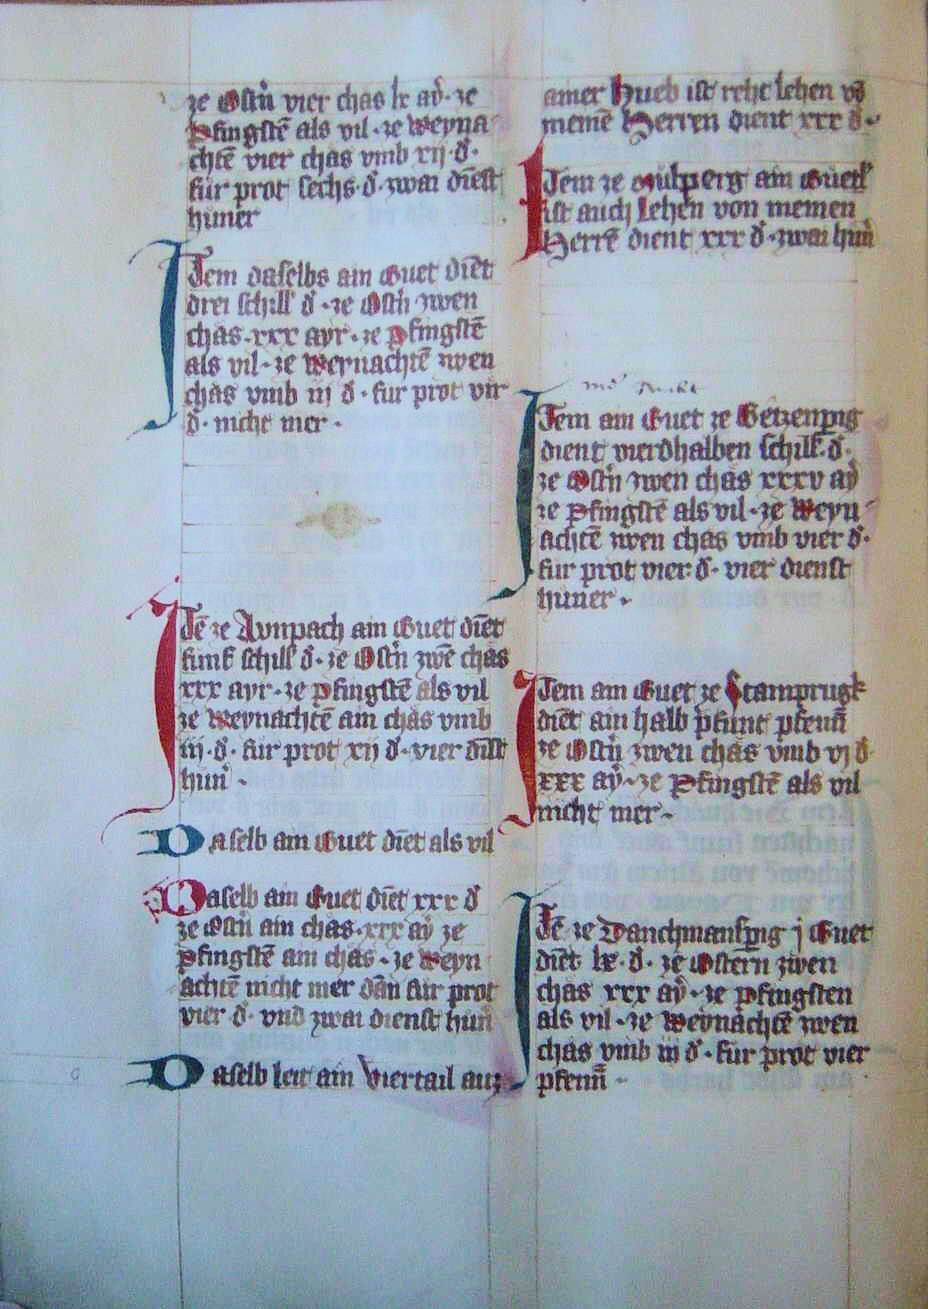 ze Ostn̄ vier chas lx aÿ · ze
Pfingstē als vil · ze Weyna
chtē vier chas vmb xij · d ·
für prot sechs · d · zwai diēst
hüner
Item daselbs ain Guet diēt
drei schill d · ze Ostn̄ zwen
chas · xxx ayr · ze Pfingstē
als vil · ze Weynachtē zwen
chas vmb iij d · für prot vir
d · nicht mer ·
Itē ze Avnpach ain Guet diēt
fünf schill d · ze Ostn̄ zwē chas
xxx ayr · ze Pfingstē als vil
ze Weynachtē ain chas vmb
iij · d · für prot xij d · vier diīst
hün̄ ·
Daselb ain Guet diēt als vil
Daselb ain Guet diēt xxx d
ze Ostn̄ ain chas · xxx aÿ ze
Pfingstē ain chas · ze Weyn
achtē nicht mer dān für prot
vier d · vnd zwai dienst hün̄
Daselb leit ain Viertail auz
ainer Hueb ist reht lehen vō
meinē Herren dient xxx d ·
Item ze Mülperg ain Guetl
ist auch Lehen von meinen
Herrē dient xxx d · zwai hün̄
Item ain Guet ze Getzenpg
dient vierdhalben schill · d ·
ze Ostn̄ zwen chas xxxv aÿ
ze Pfingstē als vil · ze Weyn
achtē zwen chas vmb vier d ·
für prot vier · d · vier dienst
hüner ·
Item ain Guet ze Stamprugk
diēt ain halb pfunt pfenn̄
ze Ostn̄ zwen chas vmb vj d ·
xxx aÿ · ze Pfingstē als vil
nicht mer ·
Itē ze Danchmansperg j Guet
diēt lx · d · ze Ostern zwen
chas xxx aÿ · ze Pfingsten
als vil · ze Weynachtē zwen
chas vmb iij d · für prot vier
pfenn̄ ·